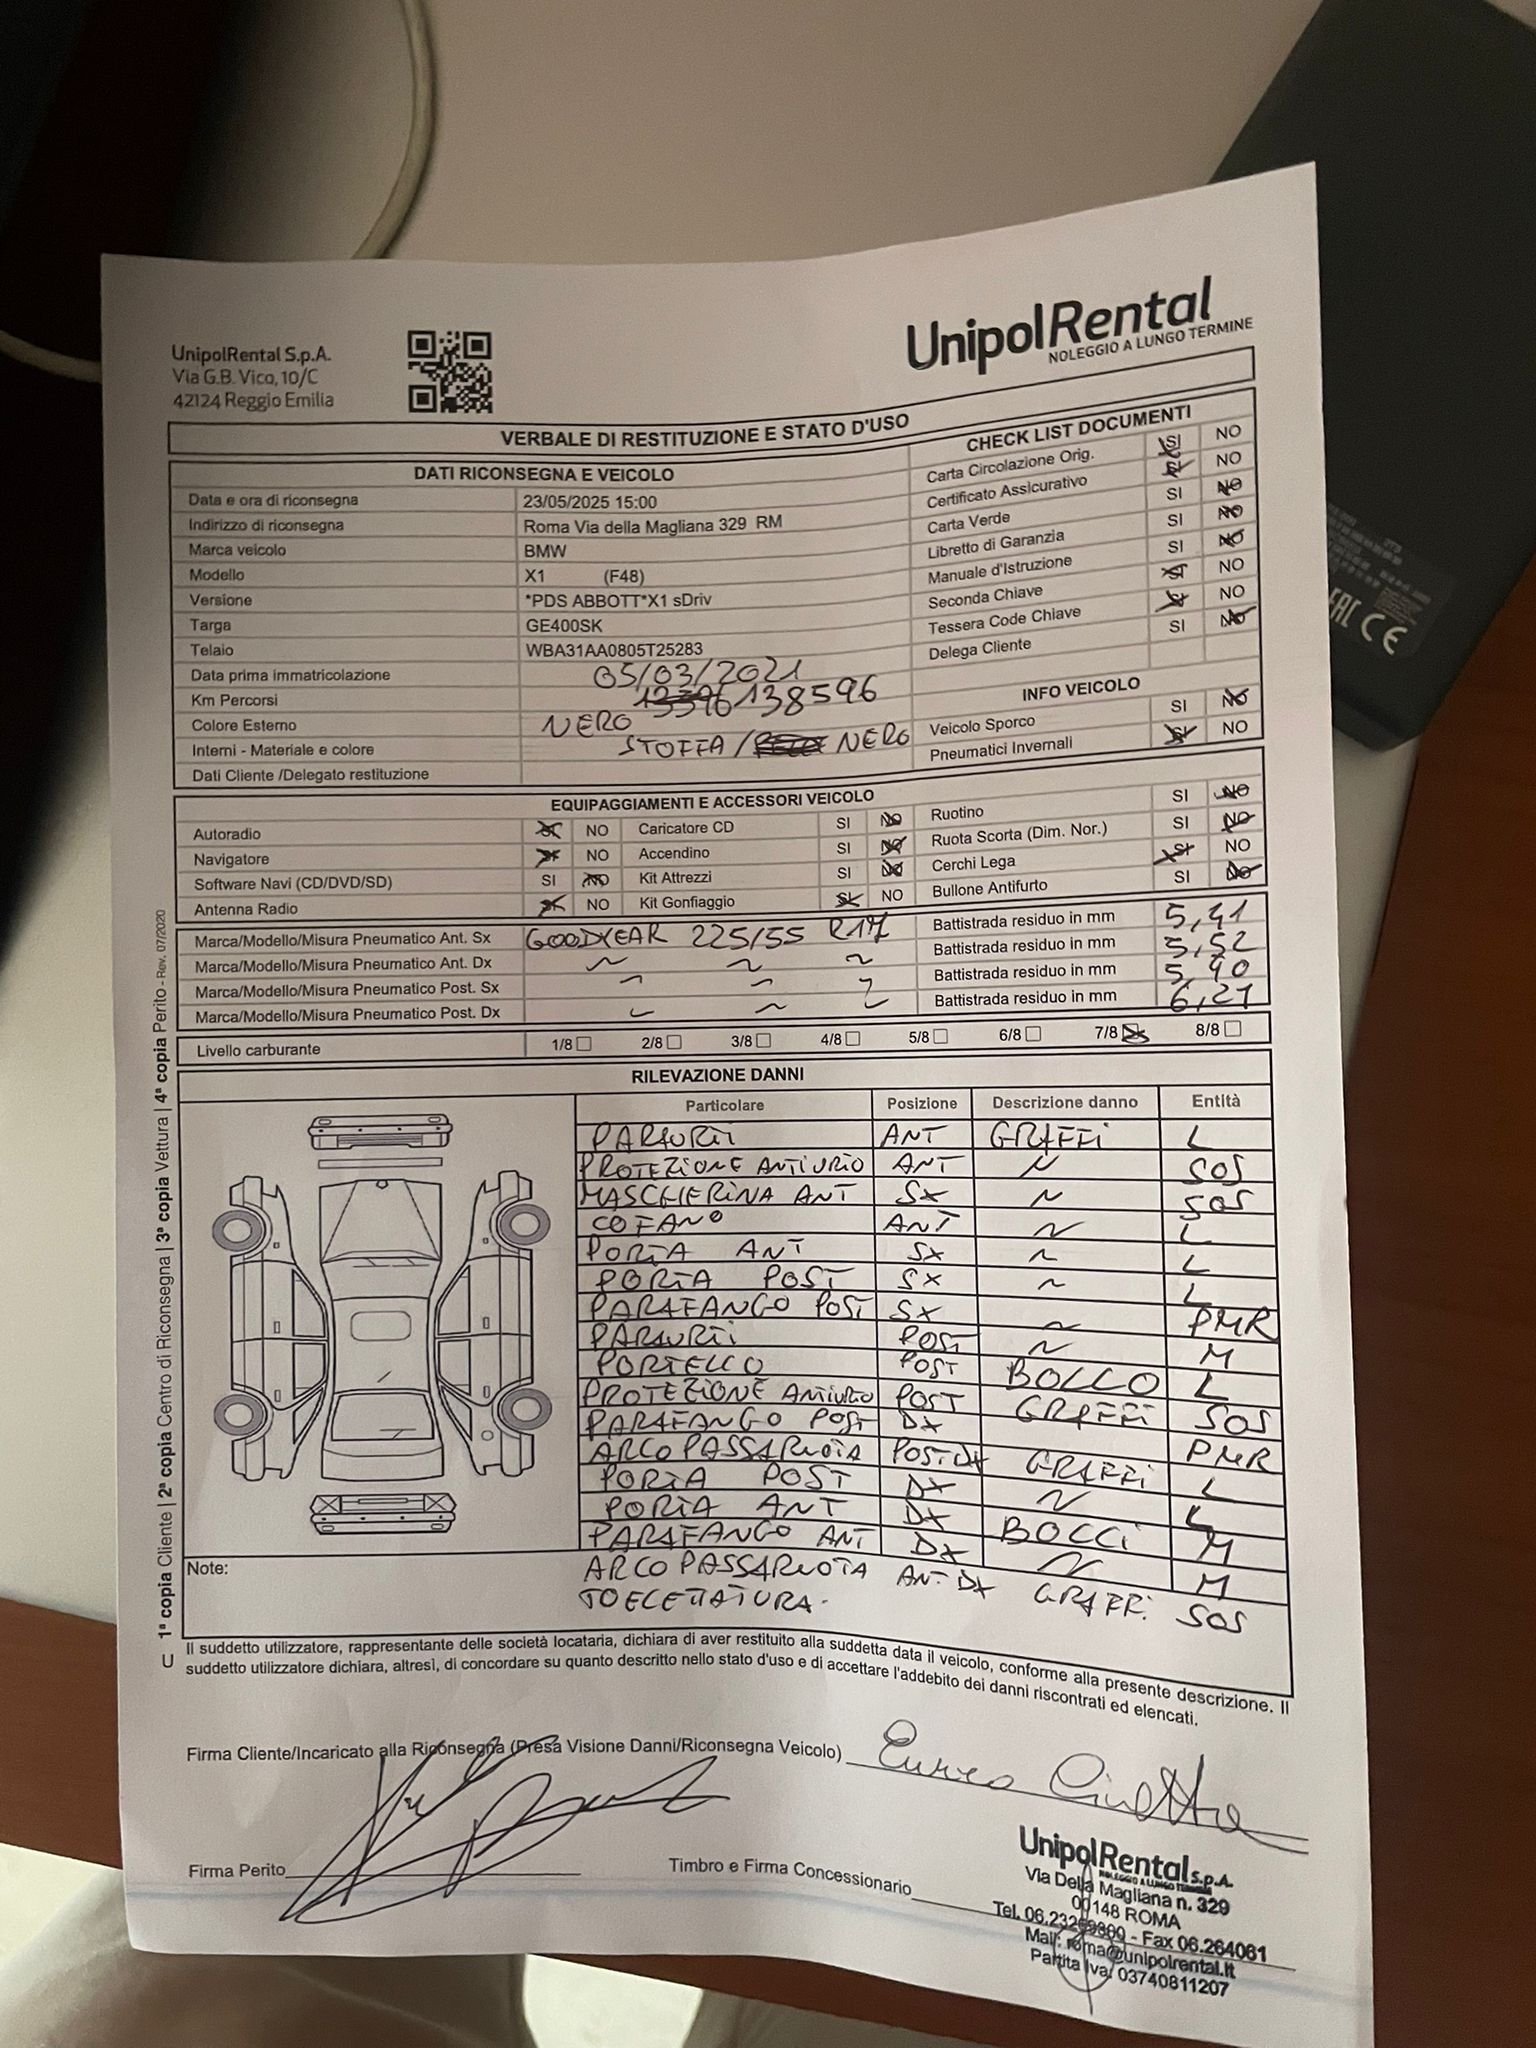 UnipolRental S.p.A.
Via G.B. Vico, 10/C
42124 Reggio Emilia
UnipolRental
NOLEGGIO A LUNGO TERMINE
VERBALE DI RESTITUZIONE E STATO D'USO
DATI RICONSEGNA E VEICOLO
Data e ora di riconsegna 23/05/2025 15:00
Indirizzo di riconsegna Roma Via della Magliana 329 RM
Marca veicolo BMW
Modello X1 (F48)
Versione *PDS ABBOTT*X1 sDriv
Targa GE400SK
Telaio WBA31AA0805T25283
Data prima immatricolazione 05/03/2021
Km Percorsi 138596
Colore Esterno NERO
Interni - Materiale e colore STOFFA / NERO
Dati Cliente /Delegato restituzione
CHECK LIST DOCUMENTI
Carta Circolazione Orig. SI NO
Certificato Assicurativo SI NO
Carta Verde SI NO
Libretto di Garanzia SI NO
Manuale d'Istruzione SI NO
Seconda Chiave SI NO
Tessera Code Chiave SI NO
Delega Cliente SI NO
INFO VEICOLO
Veicolo Sporco SI NO
Pneumatici Invernali SI NO
EQUIPAGGIAMENTI E ACCESSORI VEICOLO
Autoradio SI NO Caricatore CD SI NO Ruotino SI NO
Navigatore SI NO Accendino SI NO Ruota Scorta (Dim. Nor.) SI NO
Software Navi (CD/DVD/SD) SI NO Kit Attrezzi SI NO Cerchi Lega SI NO
Antenna Radio SI NO Kit Gonfiaggio SI NO Bullone Antifurto SI NO
Marca/Modello/Misura Pneumatico Ant. Sx GOODYEAR 225/55 R17 Battistrada residuo in mm 5,41
Marca/Modello/Misura Pneumatico Ant. Dx ~ ~ ~ Battistrada residuo in mm 5,52
Marca/Modello/Misura Pneumatico Post. Sx ~ ~ ~ Battistrada residuo in mm 5,40
Marca/Modello/Misura Pneumatico Post. Dx ~ ~ ~ Battistrada residuo in mm 6,21
Livello carburante 1/8 2/8 3/8 4/8 5/8 6/8 7/8 8/8
RILEVAZIONE DANNI
Particolare Posizione Descrizione danno Entità
PARAURTI ANT GRAFFI L
PROTEZIONE ANTIURTO ANT ~ SOS
MASCHERINA ANT SX ~ SOS
COFANO ANT ~ L
PORTA ANT SX ~ L
PORTA POST SX ~ L
PARAFANGO POST SX ~ PMR
PARAURTI POST ~ M
PORTELLO POST BOLLO L
PROTEZIONE ANTIURTO POST GRAFFI SOS
PARAFANGO POST DX PMR
ARCO PASSARUOTA POST DX GRAFFI L
PORTA POST DX ~ L
PORTA ANT DX BOCCI M
PARAFANGO ANT DX ~ M
Note:
ARCO PASSARUOTA ANT. DX GRAFFI SOS
TOELETTATURA.
Il suddetto utilizzatore, rappresentante delle società locataria, dichiara di aver restituito alla suddetta data il veicolo, conforme alla presente descrizione. Il
suddetto utilizzatore dichiara, altresì, di concordare su quanto descritto nello stato d'uso e di accettare l'addebito dei danni riscontrati ed elencati.
Firma Cliente/Incaricato alla Riconsegna (Presa Visione Danni/Riconsegna Veicolo)
Firma Perito
Timbro e Firma Concessionario
UnipolRental S.p.A.
NOLEGGIO A LUNGO TERMINE
Via Della Magliana n. 329
00148 ROMA
Fax 06.264061
Mail: roma@unipolrental.it
Partita Iva: 03740811207
1ª copia Cliente | 2ª copia Centro di Riconsegna | 3ª copia Vettura | 4ª copia Perito - Rev. 07/2020
U
EAC CE